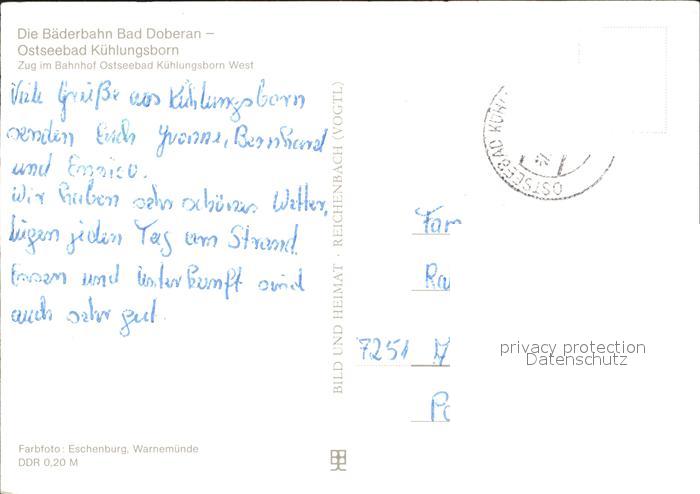 Die Bäderbahn Bad Doberan –
Ostseebad Kühlungsborn
Zug im Bahnhof Ostseebad Kühlungsborn West
Viele Grüße aus Kühlungsborn
senden Euch Yvonne, Bernhard
und Enrico.
Wir haben sehr schönes Wetter,
liegen jeden Tag am Strand.
Essen und Unterkunft sind
auch sehr gut.
Farbfoto: Eschenburg, Warnemünde
DDR 0,20 M
BILD UND HEIMAT · REICHENBACH (VOGTL)
OSTSEEBAD KÜHL
Fam
Ra
7251 M
Po
privacy protection
Datenschutz